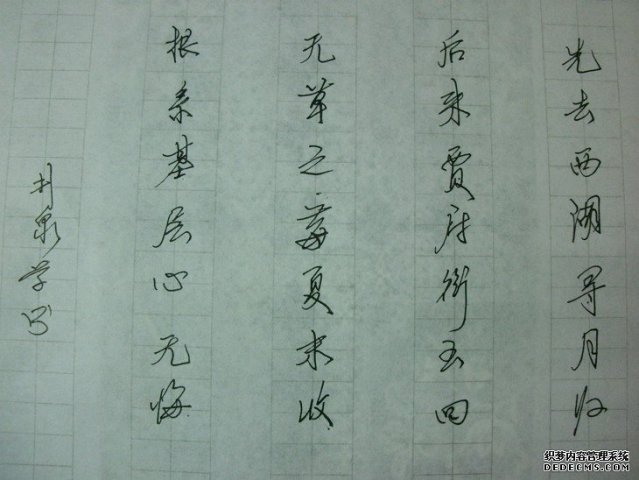 先去西湖寻月归
后来贾府衔玉回
无草之莓夏末收
根系基层心无悔
井泉学书
织梦内容管理系统
DEDECMS.COM